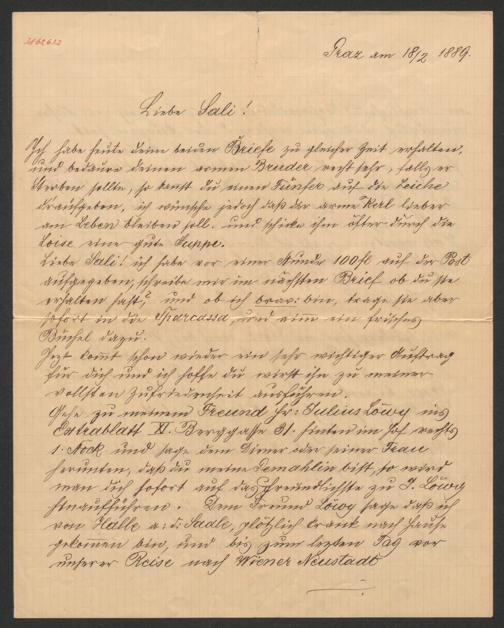 Graz am 18/2 1889.
Liebe Sali!
Ich habe heute deine beiden Briefe zu gleicher Zeit erhalten,
und bedaure deinen armen Bruder recht sehr, falls er
sterben sollte, so kanst du einen Fünfer auf die Leiche
draufgeben, ich wünsche jedoch daß der arme Kerl lieber
am Leben bleiben soll. und schicke ihm öfter durch die
Loise eine gute Suppe.
Liebe Sali! ich habe vor einer Stunde 100 fl auf der Post
aufgegeben, schreibe mir im nächsten Brief ob du sie
erhalten hast? und ob ich brav bin, trage sie aber
sofort in die Sparcassa, und nim ein frisches
Büchel dazu.
Jezt komt schon wieder ein sehr wichtiger Auftrag
für dich und ich hoffe du wirst ihn zu meiner
vollsten Zufriedenheit ausführen.
Gehe zu meinem Freund Hr. Julius Löwy ins
Extrablatt XI. Berggasse 31. hinten im Hof rechts
1. Stock und sage dem Diener oder seiner Frau
herunten, daß du meine Gemahlin bist, so wird
man dich sofort auf das freundlichste zu J. Löwy
hinaufführen. Dem Freund Löwy sage daß ich
von Halle a: d: Saale, plötzlich krank nach Hause
gekommen bin, und bis zum lezten Tag vor
unserer Reise nach Wiener Neustadt